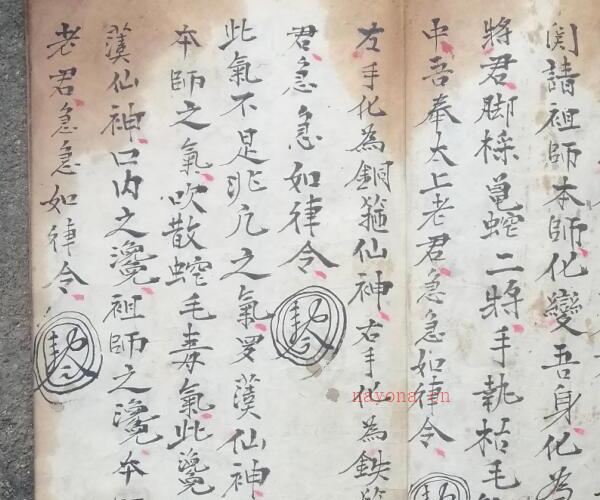 請祖師本師化變吾身化為
將君脚採黽蛇二將手執枯毛
中吾奉太上老君急急如律令
左手化為銅箍仙神右手化為鉄
君急急如律令
此氣不是非凢之氣罗漢仙神
本師之氣吹散蛇毛毒氣此
漢仙神口内之祖師之本
老君急急如律令
nayona.cn